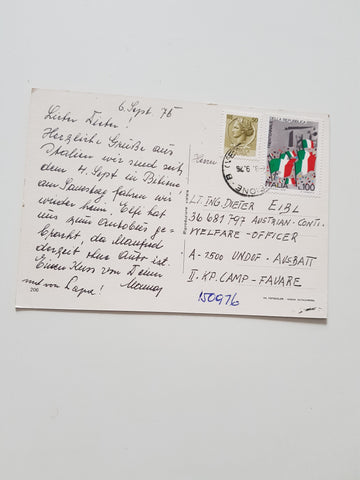 6. Sept 76
Lieber Dieter!
Herzliche Grüße aus
Italien wir sind seit
dem 4. Sept in Bibione
am Samstag fahren wir
wieder heim. Elfi hat
uns zum Autobus ge-
bracht, da Manfred
derzeit ohne Auto ist.
Einen Kuss von Deiner
und von Papa!
206
Herrn
LT. ING. DIETER EIBL
36 681 797 AUSTRIAN-CONTI.
WELFARE-OFFICER
A-1500 UNDOF-AUSBATT
II. KP. CAMP-FAVARE
150976
ITALIA L.100